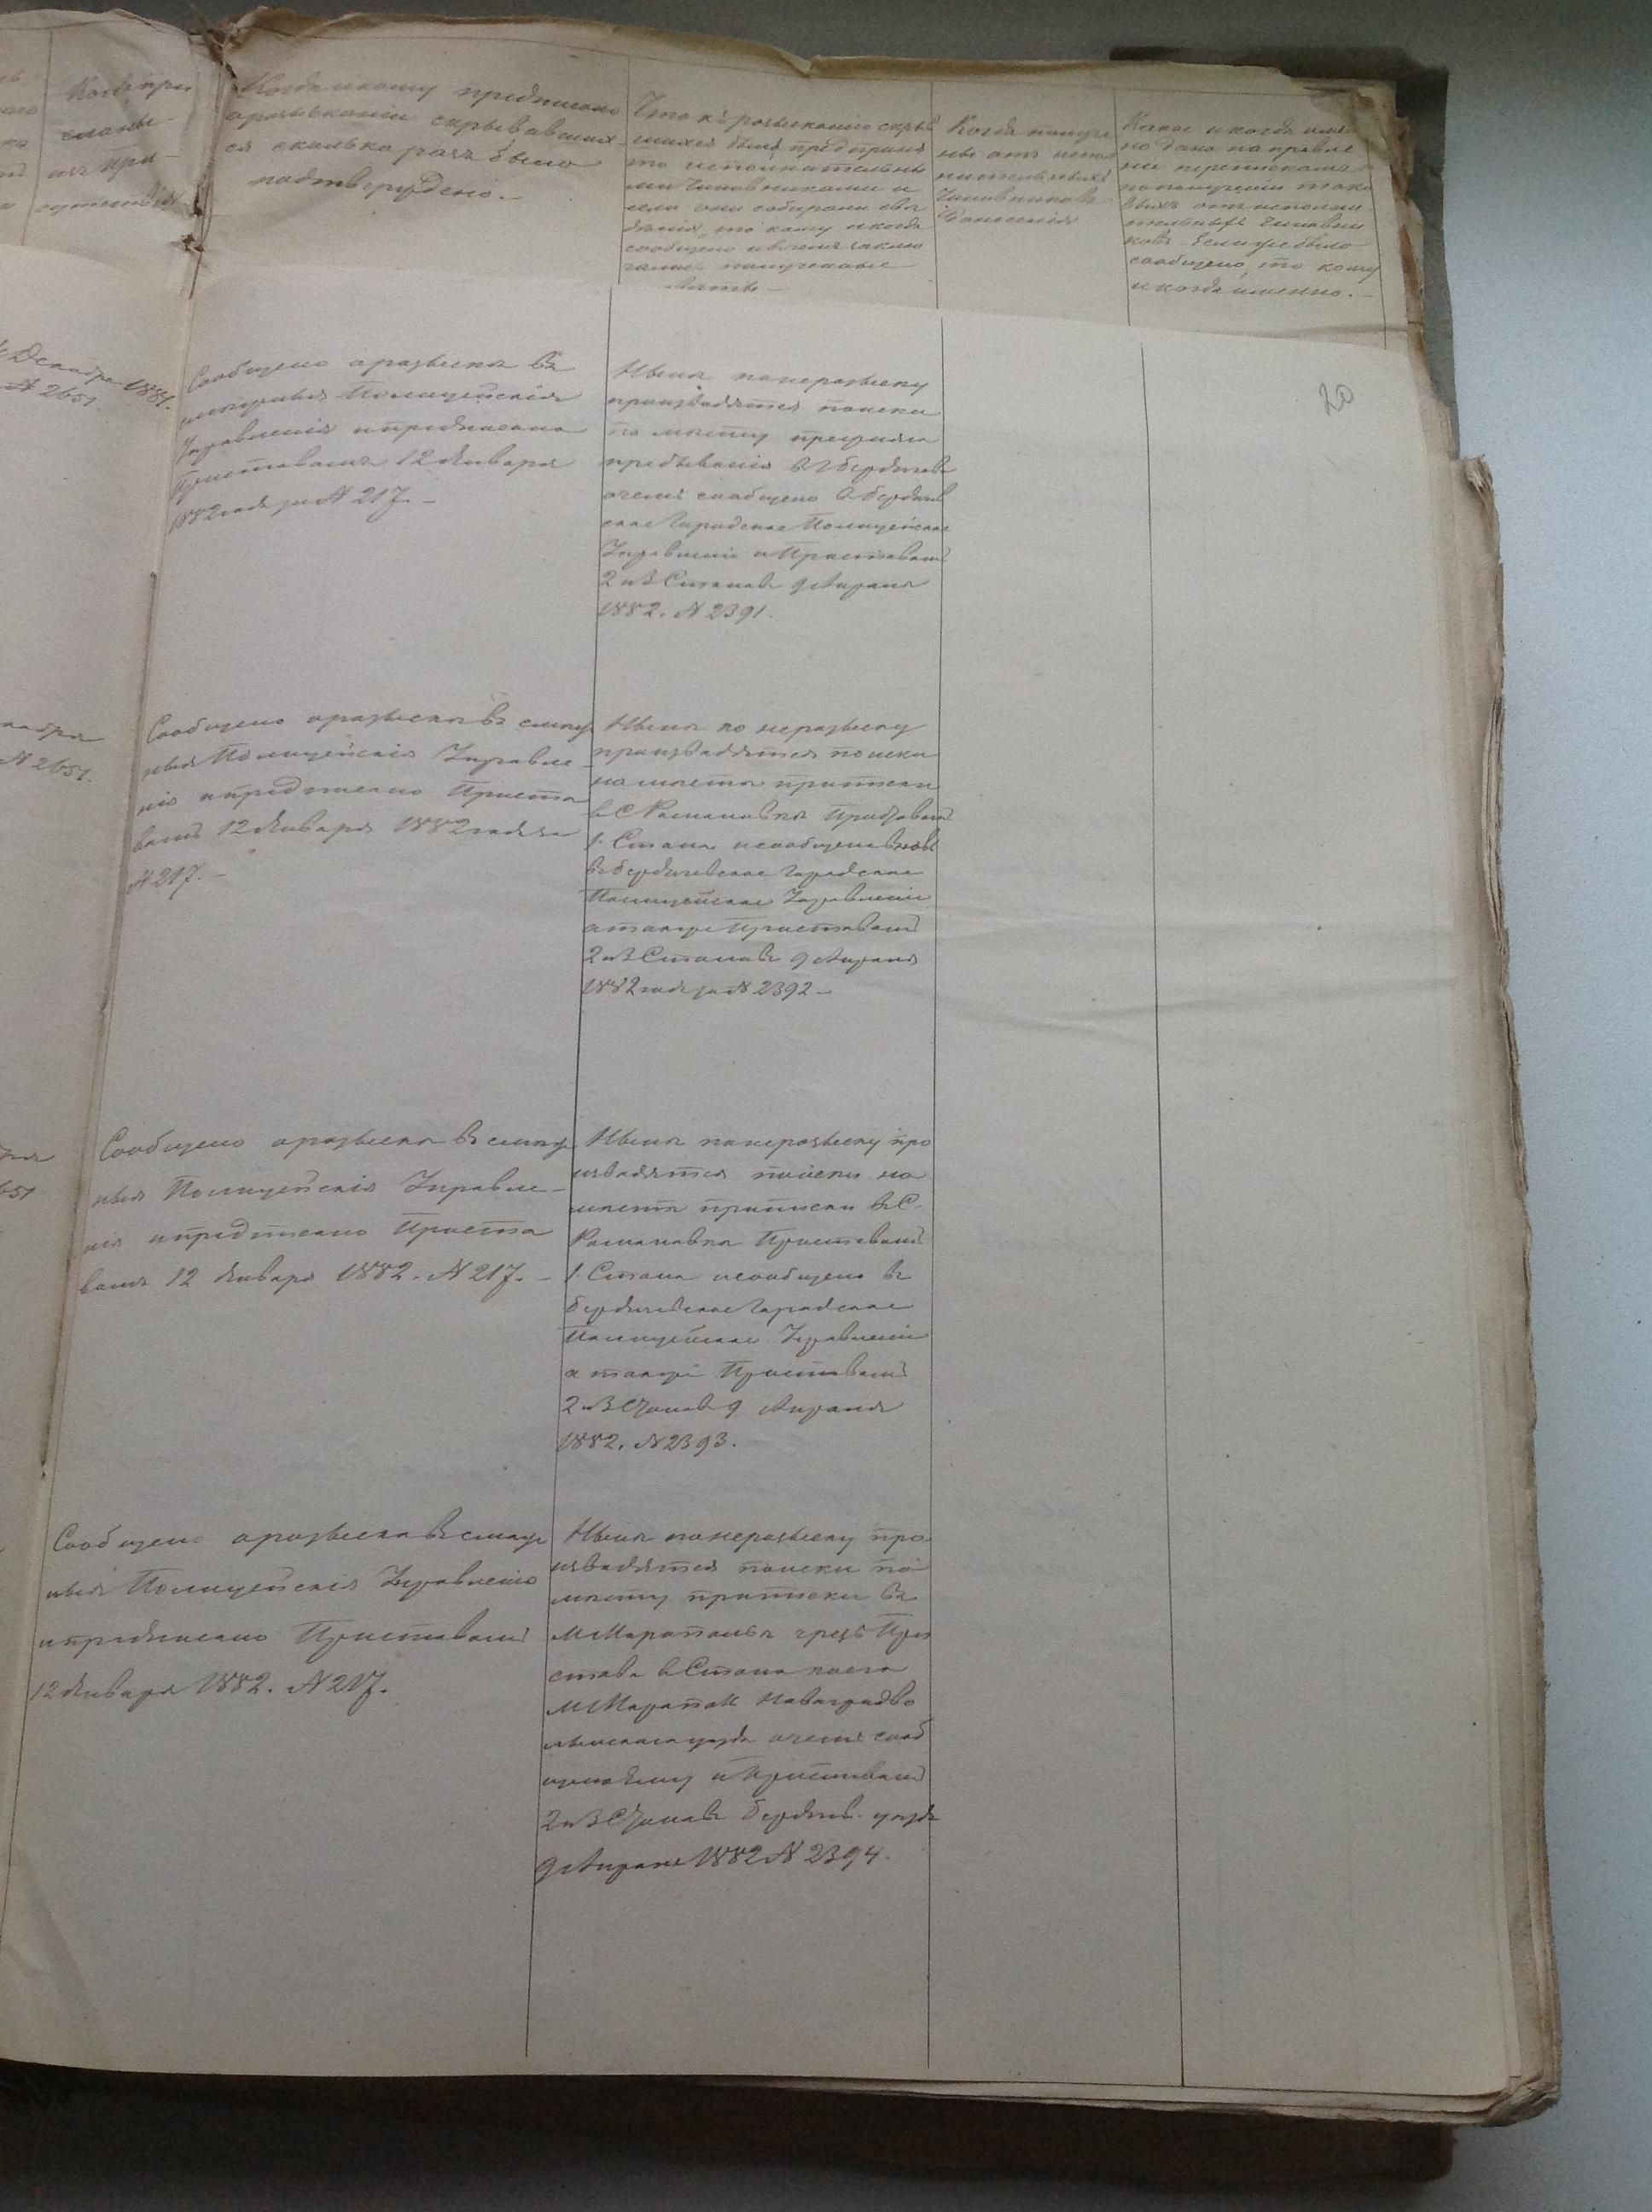 Когда при
сланы
изъ При
сутствія
Когда и кому предписано
о розысканіи скрывавших
ся сколько разъ было
подтверждено. —
Что къ розысканію скрыв
шихся было предприня
то исполнительны
ми Чиновниками и
если они собирали све
дѣнія, то кому и когда
сообщено и въ чемъ заклю
чались полученные
Когда получе
ны отъ испол
нительныхъ
Чиновниковъ
донесенія
Какое и когда имен
но дано направле
ніе перепискамъ
по полученіи тако
выхъ отъ исполни
тельныхъ Чиновни
ковъ Если уже было
сообщено, то кому
и когда именно. —
20
Декабря 1881.
№ 2651
Сообщено о розыскѣ въ
смежныя Полицейскія
Управленія и предписано
Приставамъ 12 Января
1882 года за № 217. —
Нынѣ по неразыску
производятся поиски
по мѣсту прежняго
пребыванія въ г Бердичевѣ
о чемъ сообщено въ Бердичев
ское Городское Полицейское
Управленіе и Приставамъ
2 и 3 Становъ 9 Апрѣля
1882. № 2391.
№ 2651.
Сообщено о розыскѣ въ смеж
ныя Полицейскія Управле
нія и предписано Приста
вамъ 12 Января 1882 года за
№ 217. —
Нынѣ по неразыску
производятся поиски
на мѣстѣ приписки
въ С Романовкѣ Приставомъ
1. Стана и сообщено вновь
въ Бердичевское Городское
Полицейское Управленіе
а также Приставамъ
2 и 3 Становъ 9 Апрѣля
1882 года за № 2392 —
Сообщено о розыскѣ въ смеж
ныя Полицейскія Управле —
нія и предписано Приста
вамъ 12 Января 1882. № 217. —
Нынѣ по неразыску про
изводятся поиски на
мѣстѣ приписки въ С.
Романовкѣ Приставомъ
1. Стана и сообщено въ
Бердичевское Городское
Полицейское Управленіе
а также Приставамъ
2 и 3 Становъ 9 Апрѣля
1882. № 2393.
Сообщено о розыскѣ въ смеж
ныя Полицейскія Управленія
и предписано Приставамъ
12 Января 1882. № 217.
Нынѣ по неразыску про
изводятся поиски по
мѣсту приписки въ
М Мирополь чрезъ При
става Стана
М Мирополь Новоградво
лынскаго уѣзда о чемъ сооб
щено ему и Приставамъ
2 и 3 Становъ Бердичев. уѣзда
9 Апрѣля 1882 № 2394.